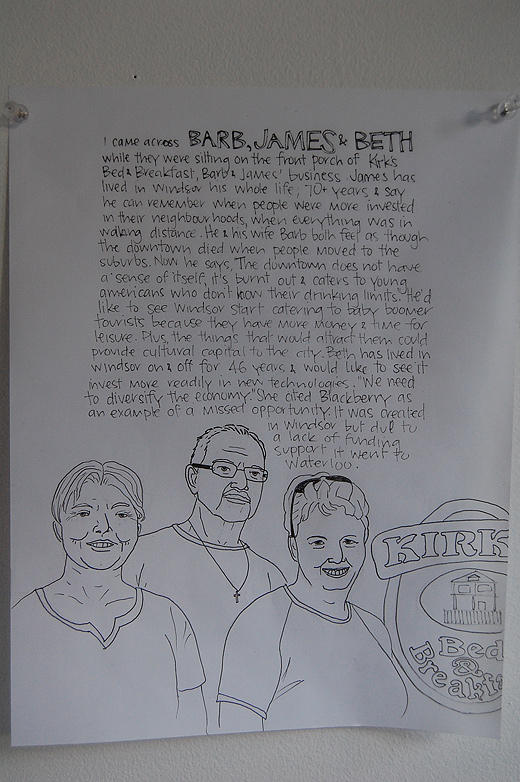 I came across BARB, JAMES & BETH
while they were sitting on the front porch of Kirk's
Bed & Breakfast, Barb & James' business. James has
lived in Windsor his whole life, 70+ years & say
he can remember when people were more invested
in their neighbourhoods, when everything was in
walking distance. He & his wife Barb both feel as though
the downtown died when people moved to the
suburbs. Now he says, "The downtown does not have
a sense of itself, it's burnt out & caters to young
americans who don't know their drinking limits." He'd
like to see Windsor start catering to baby boomer
tourists because they have more money & time for
leisure. Plus, the things that would attract them could
provide cultural capital to the city. Beth has lived in
windsor on & off for 46 years & would like to see it
invest more readily in new technologies. "We need
to diversify the economy." She cited Blackberry as
an example of a missed opportunity. It was created
in Windsor but due to
a lack of funding
support it went to
Waterloo.
KIRK
Bed
&
Breakfa